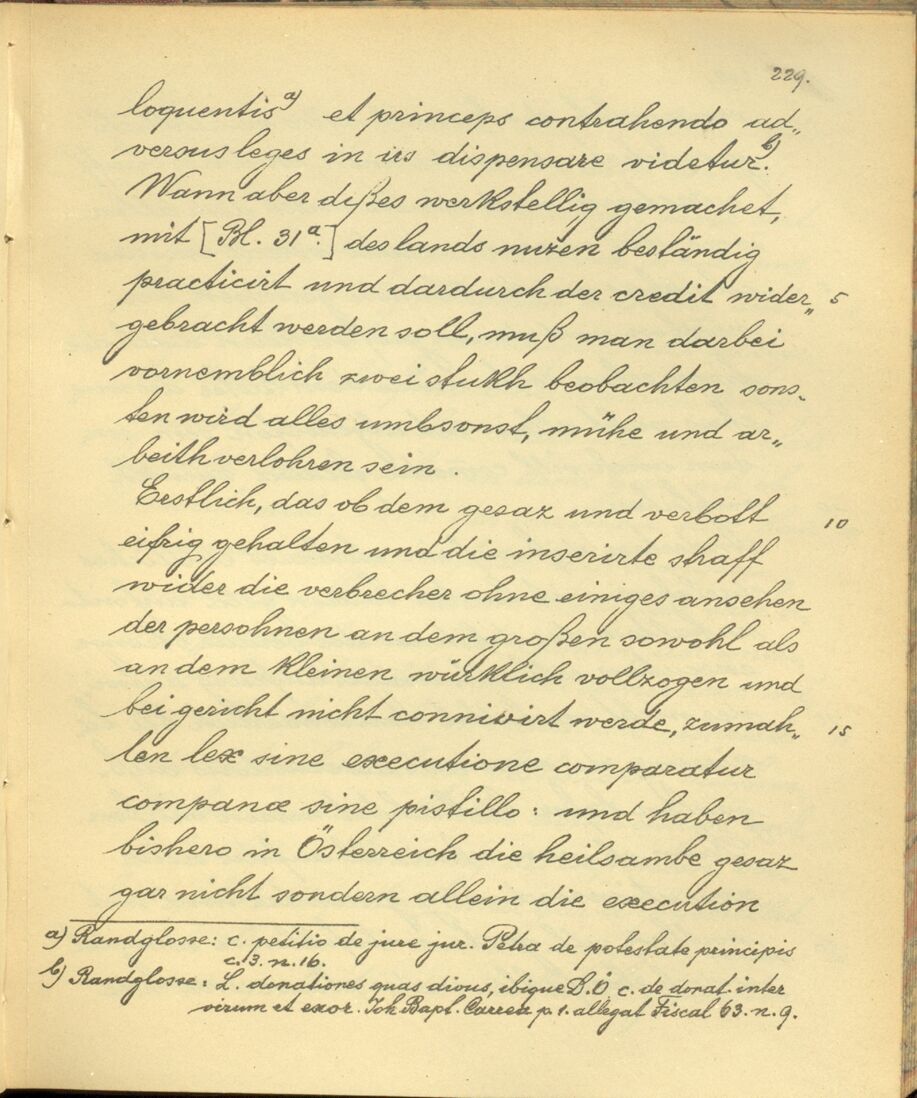 229.
loquentis a) et princeps contrahendo ad„
versus leges in irs dispensare videtur. b)
Wann aber dißes werkstellig gemachet,
mit [Bl. 31a.] des lands nuzen beständig
practicirt und dardurch der credit wider„ 5
gebracht werden soll, muß man darbei
vornemblich zwei stukh beobachten sons„
ten wird alles umbsonst, mühe und ar„
beith verlohren sein.
Erstlich, das ob dem gesaz und verbott 10
eifrig gehalten und die inserirte straff
wider die verbrecher ohne einiges ansehen
der persohnen an dem großen sowohl als
an dem kleinen würklich vollzogen und
bei gericht nicht connivirt werde, zumah„ 15
len lex sine executione comparatur
companæ sine pistillo: und haben
bishero in Österreich die heilsambe gesaz
gar nicht sondern allein die execution
a) Randglosse: c. petitio de jure jur. Petra de potestate principis
c. 3. n. 16.
b) Randglosse: L. donationes quas divus, ibique D.D c. de donat. inter
virum et exor. Joh Bapt. Carrea p. 1. allegat Fiscal 63. n. 9.